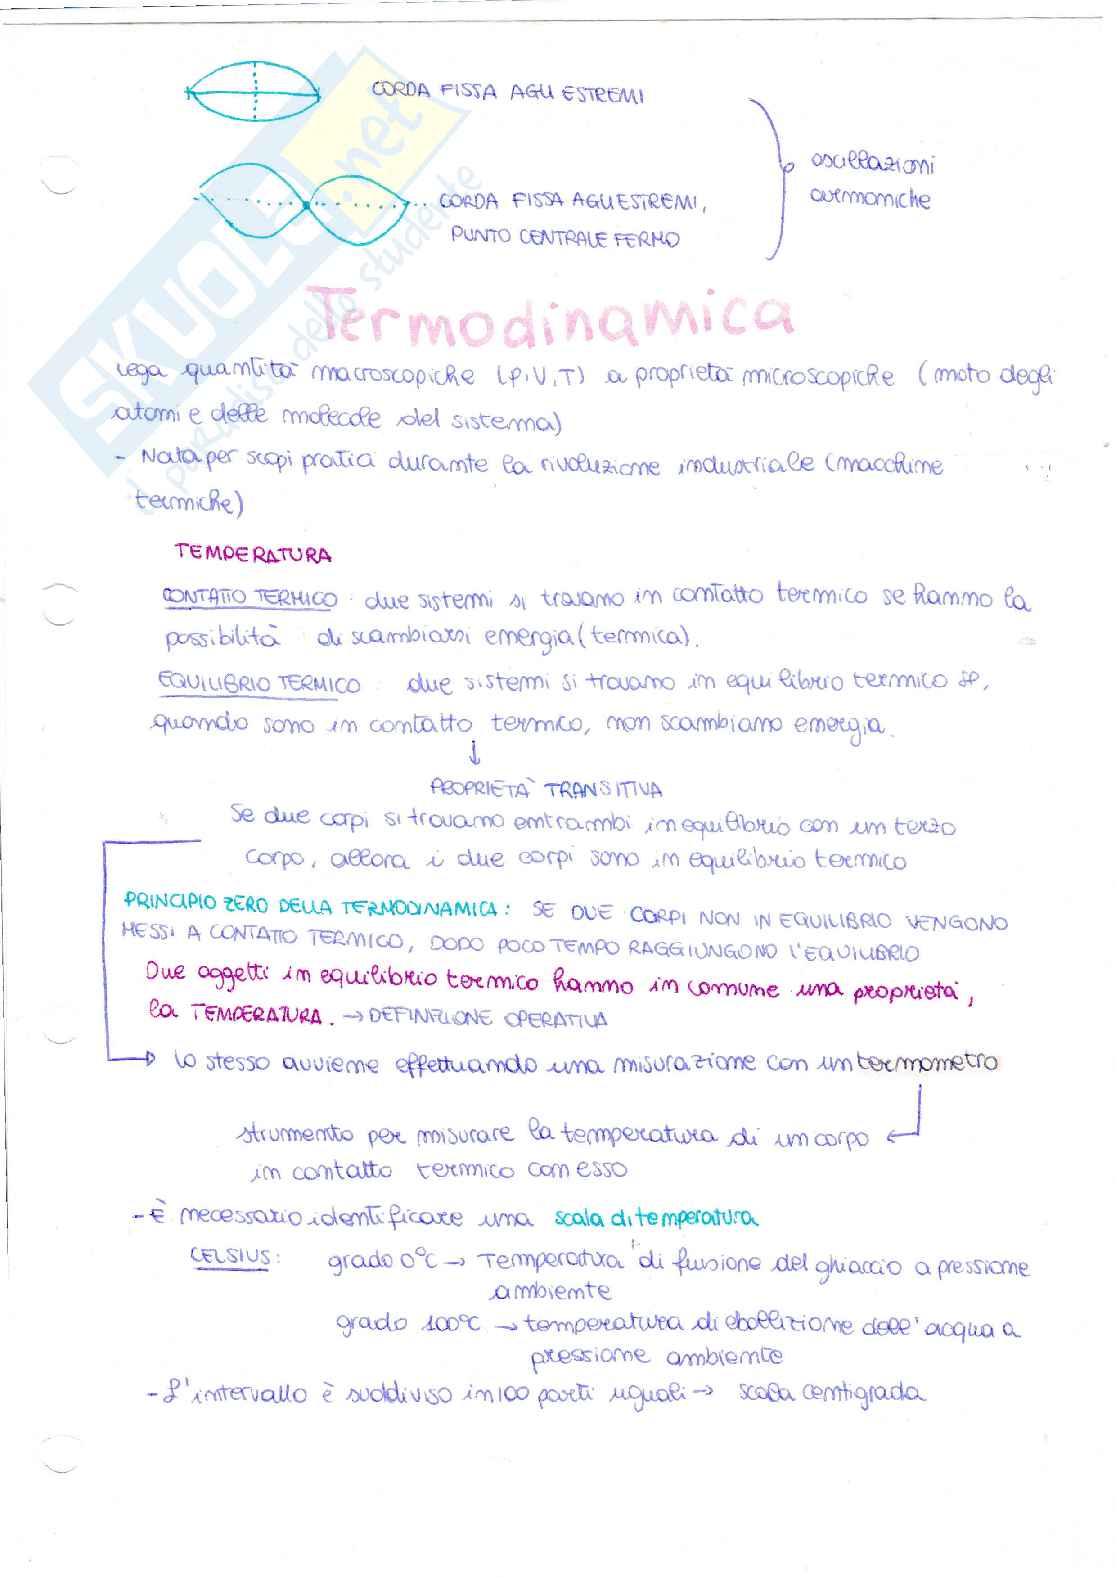 CORDA FISSA AGLI ESTREMI
oscillazioni
armoniche
CORDA FISSA AGLI ESTREMI,
PUNTO CENTRALE FERMO
SKUOLA.net
il paradiso dello studente
Termodinamica
Lega quantità macroscopiche (p,V,T) a proprietà microscopiche (moto degli
atomi e delle molecole del sistema)
- Nata per scopi pratici durante la rivoluzione industriale (macchine
termiche)
TEMPERATURA
CONTATTO TERMICO: due sistemi si trovano in contatto termico se hanno la
possibilità di scambiarsi energia (termica).
EQUILIBRIO TERMICO: due sistemi si trovano in equilibrio termico se,
quando sono in contatto termico, non scambiano energia.
↓
PROPRIETÀ TRANSITIVA
Se due corpi si trovano entrambi in equilibrio con un terzo
corpo, allora i due corpi sono in equilibrio termico
PRINCIPIO ZERO DELLA TERMODINAMICA: SE DUE CORPI NON IN EQUILIBRIO VENGONO
MESSI A CONTATTO TERMICO, DOPO POCO TEMPO RAGGIUNGONO L'EQUILIBRIO
Due oggetti in equilibrio termico hanno in comune una proprietà,
la TEMPERATURA. → DEFINIZIONE OPERATIVA
Lo stesso avviene effettuando una misurazione con un termometro
strumento per misurare la temperatura di un corpo
in contatto termico con esso
- È necessario identificare una scala di temperatura
CELSIUS: grado 0°C → Temperatura di fusione del ghiaccio a pressione
ambiente
grado 100°C → temperatura di ebollizione dell'acqua a
pressione ambiente
- L'intervallo è suddiviso in 100 parti uguali → scala centigrada